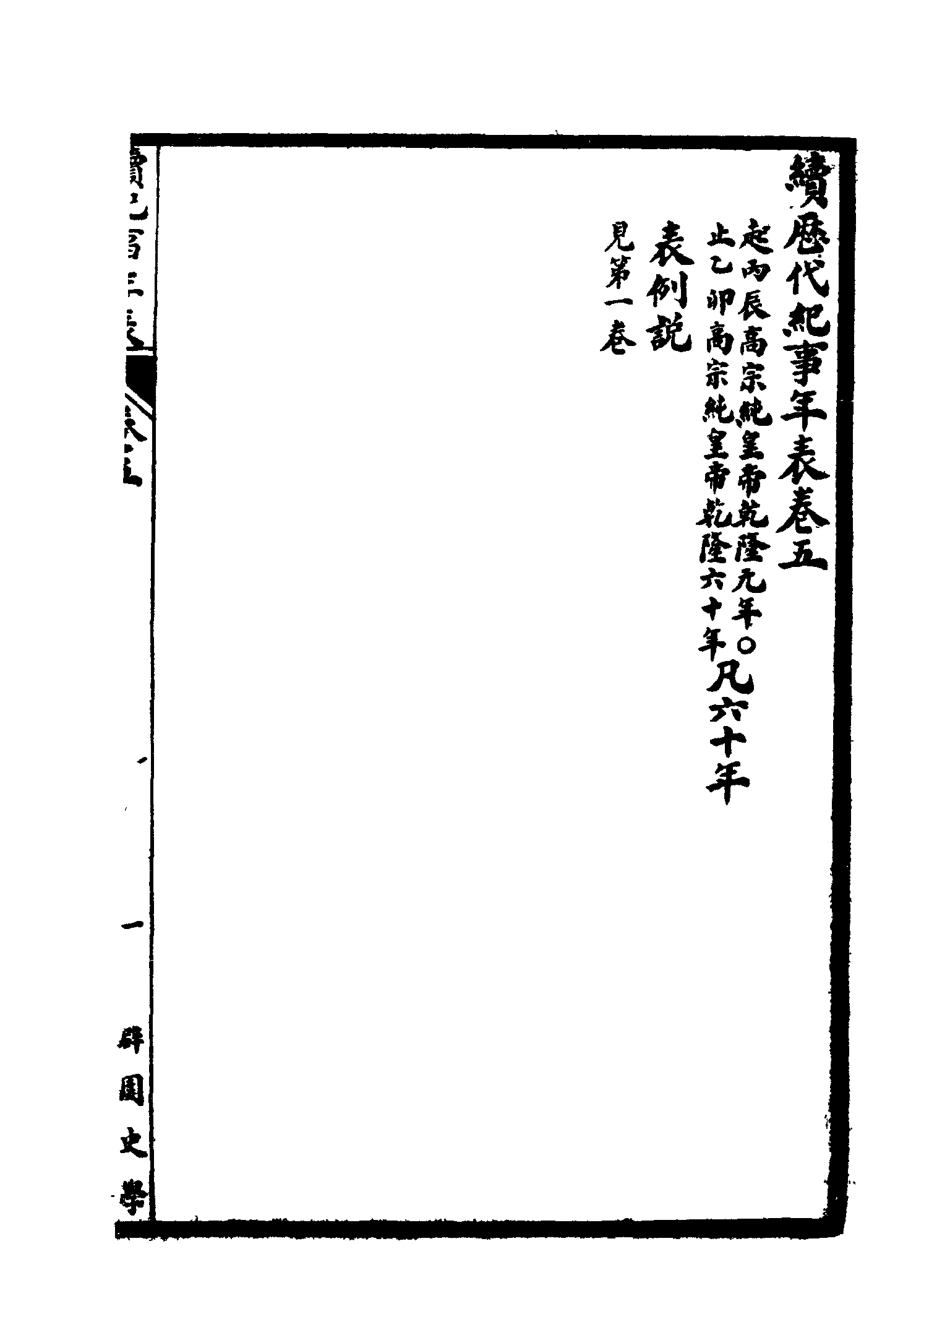 續歷代紀事年表卷五
起丙辰高宗純皇帝乾隆元年○
止乙卯高宗純皇帝乾隆六十年
凡六十年
表例説
見第一卷
一
辟園史學